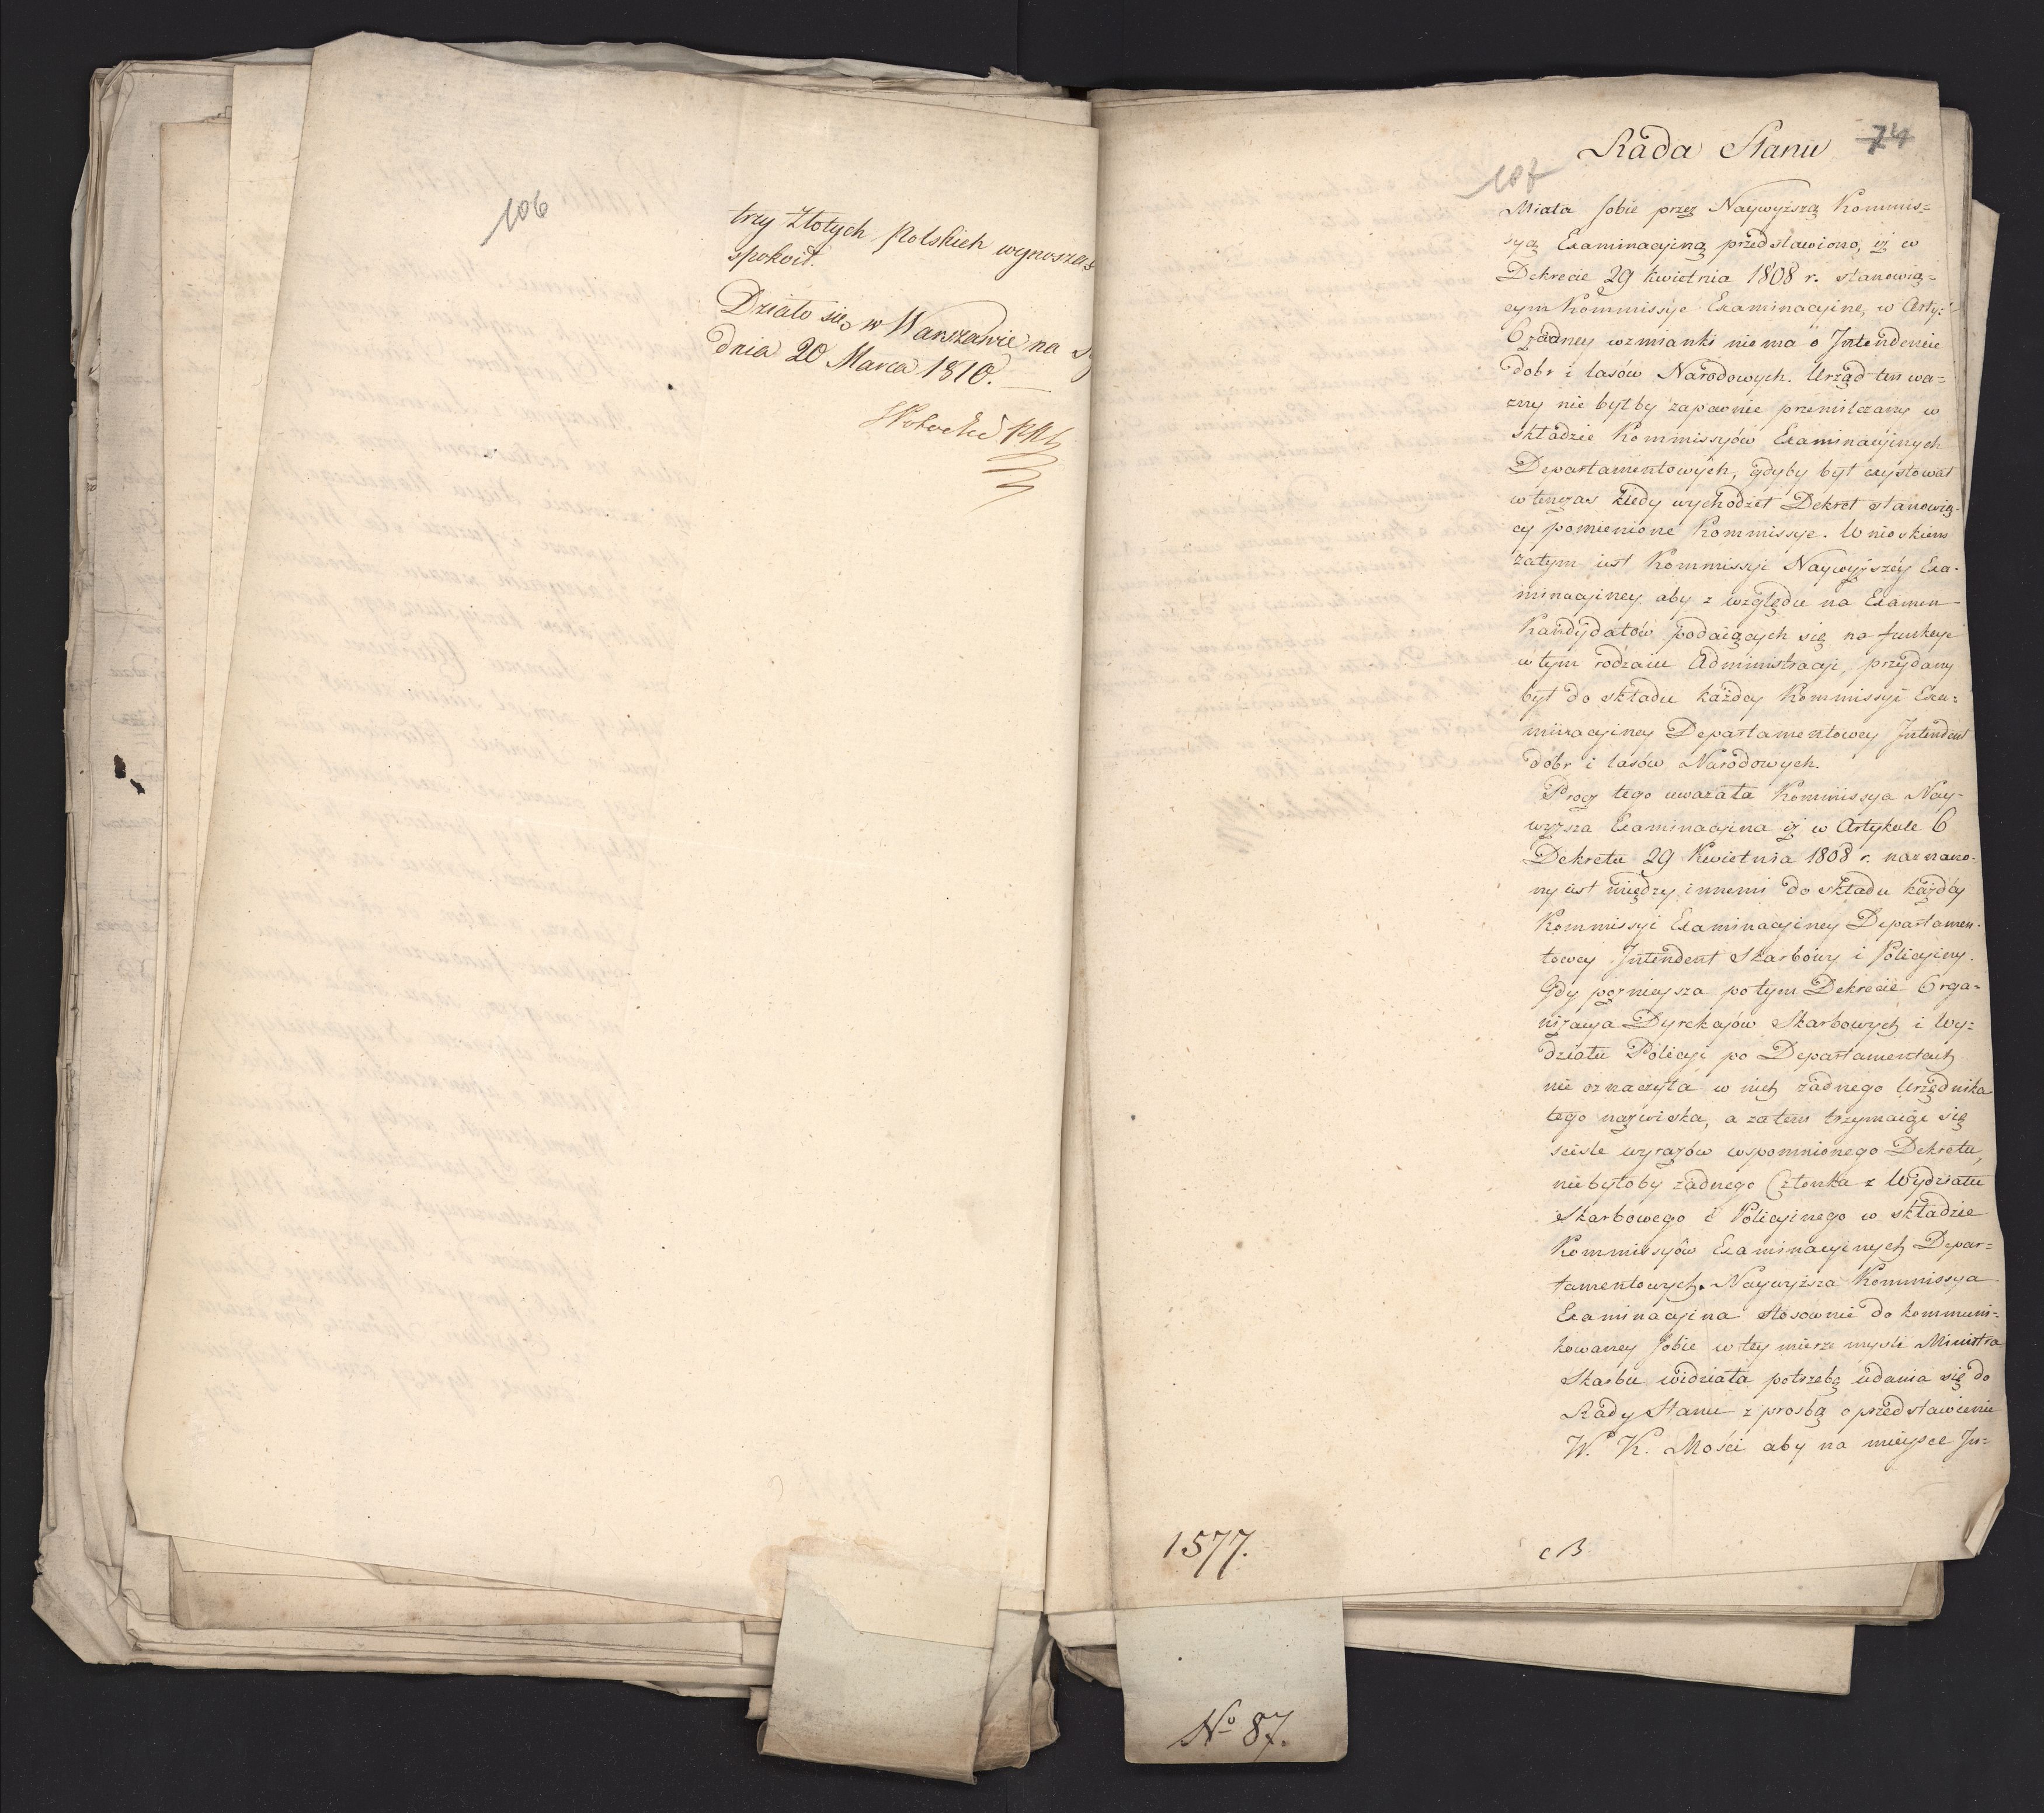 106
trzy Złotych Polskich wynosząc
spokoił.
Działo się w Warszawie na
dnia 20 Marca 1810.
74
107
Rada Stanu
Miała sobie przez Naywyższą Kommis=
syą Examinacyiną przedstawiono, iż w
Dekrecie 29 Kwietnia 1808 r. stanowią=
cym Kommissye Examinacyine, w Arty:
6 żadney wzmianki niema o Intendencie
dobr i lasów Narodowych. Urząd ten wa=
żny nie byłby zapewnie przemilczany w
składzie Kommissyów Examinacyinych
Departamentowych, gdyby był exystował
wtenczas kiedy wychodził Dekret stanowią=
cy pomienione Kommissye. Wnioskiem
zatym iest Kommissyi Naywyższéy Exa-
minacyiney aby z względu na Examen
Kandydatów podaiących się na funkcye
w tym rodzaiu Administracyi, przydany
był do składu każdey Kommissyi Exa=
minacyiney Departamentowey Intendent
dóbr i lasów Narodowych.
Procz tego uważała Kommissya Nay-
wyższa Examinacyina iż w Artykule 6
Dekretu 29 Kwietnia 1808 r. naznaczo-
ny iest między innemi do składu każdéy
Kommissyi Examinacyiney Departamen-
towey Intendent Skarbowy i Policyiny.
Gdy poźnieysza po tym Dekrecie Orga=
nizacya Dyrekcyów Skarbowych i Wy=
działu Policyi po Departamentach
nie oznaczyła w nich żadnego Urzędnika
tego nazwiska, a zatem trzymaiąc się
ściśle wyrazów wspomnionego Dekretu,
niebyłoby żadnego Członka z Wydziału
Skarbowego i Policyinego w składzie
Kommissyów Examinacyinych Depar=
tamentowych. Naywyższa Kommissya
Examinacyina stosownie do kommuni=
kowaney sobie w tey mierze myśli Ministra
Skarbu widziała potrzebę udania się do
Rady Stanu z prosbą o przedstawienie
W. K. Mości aby na mieysce In=
1577.
cB
No 87.